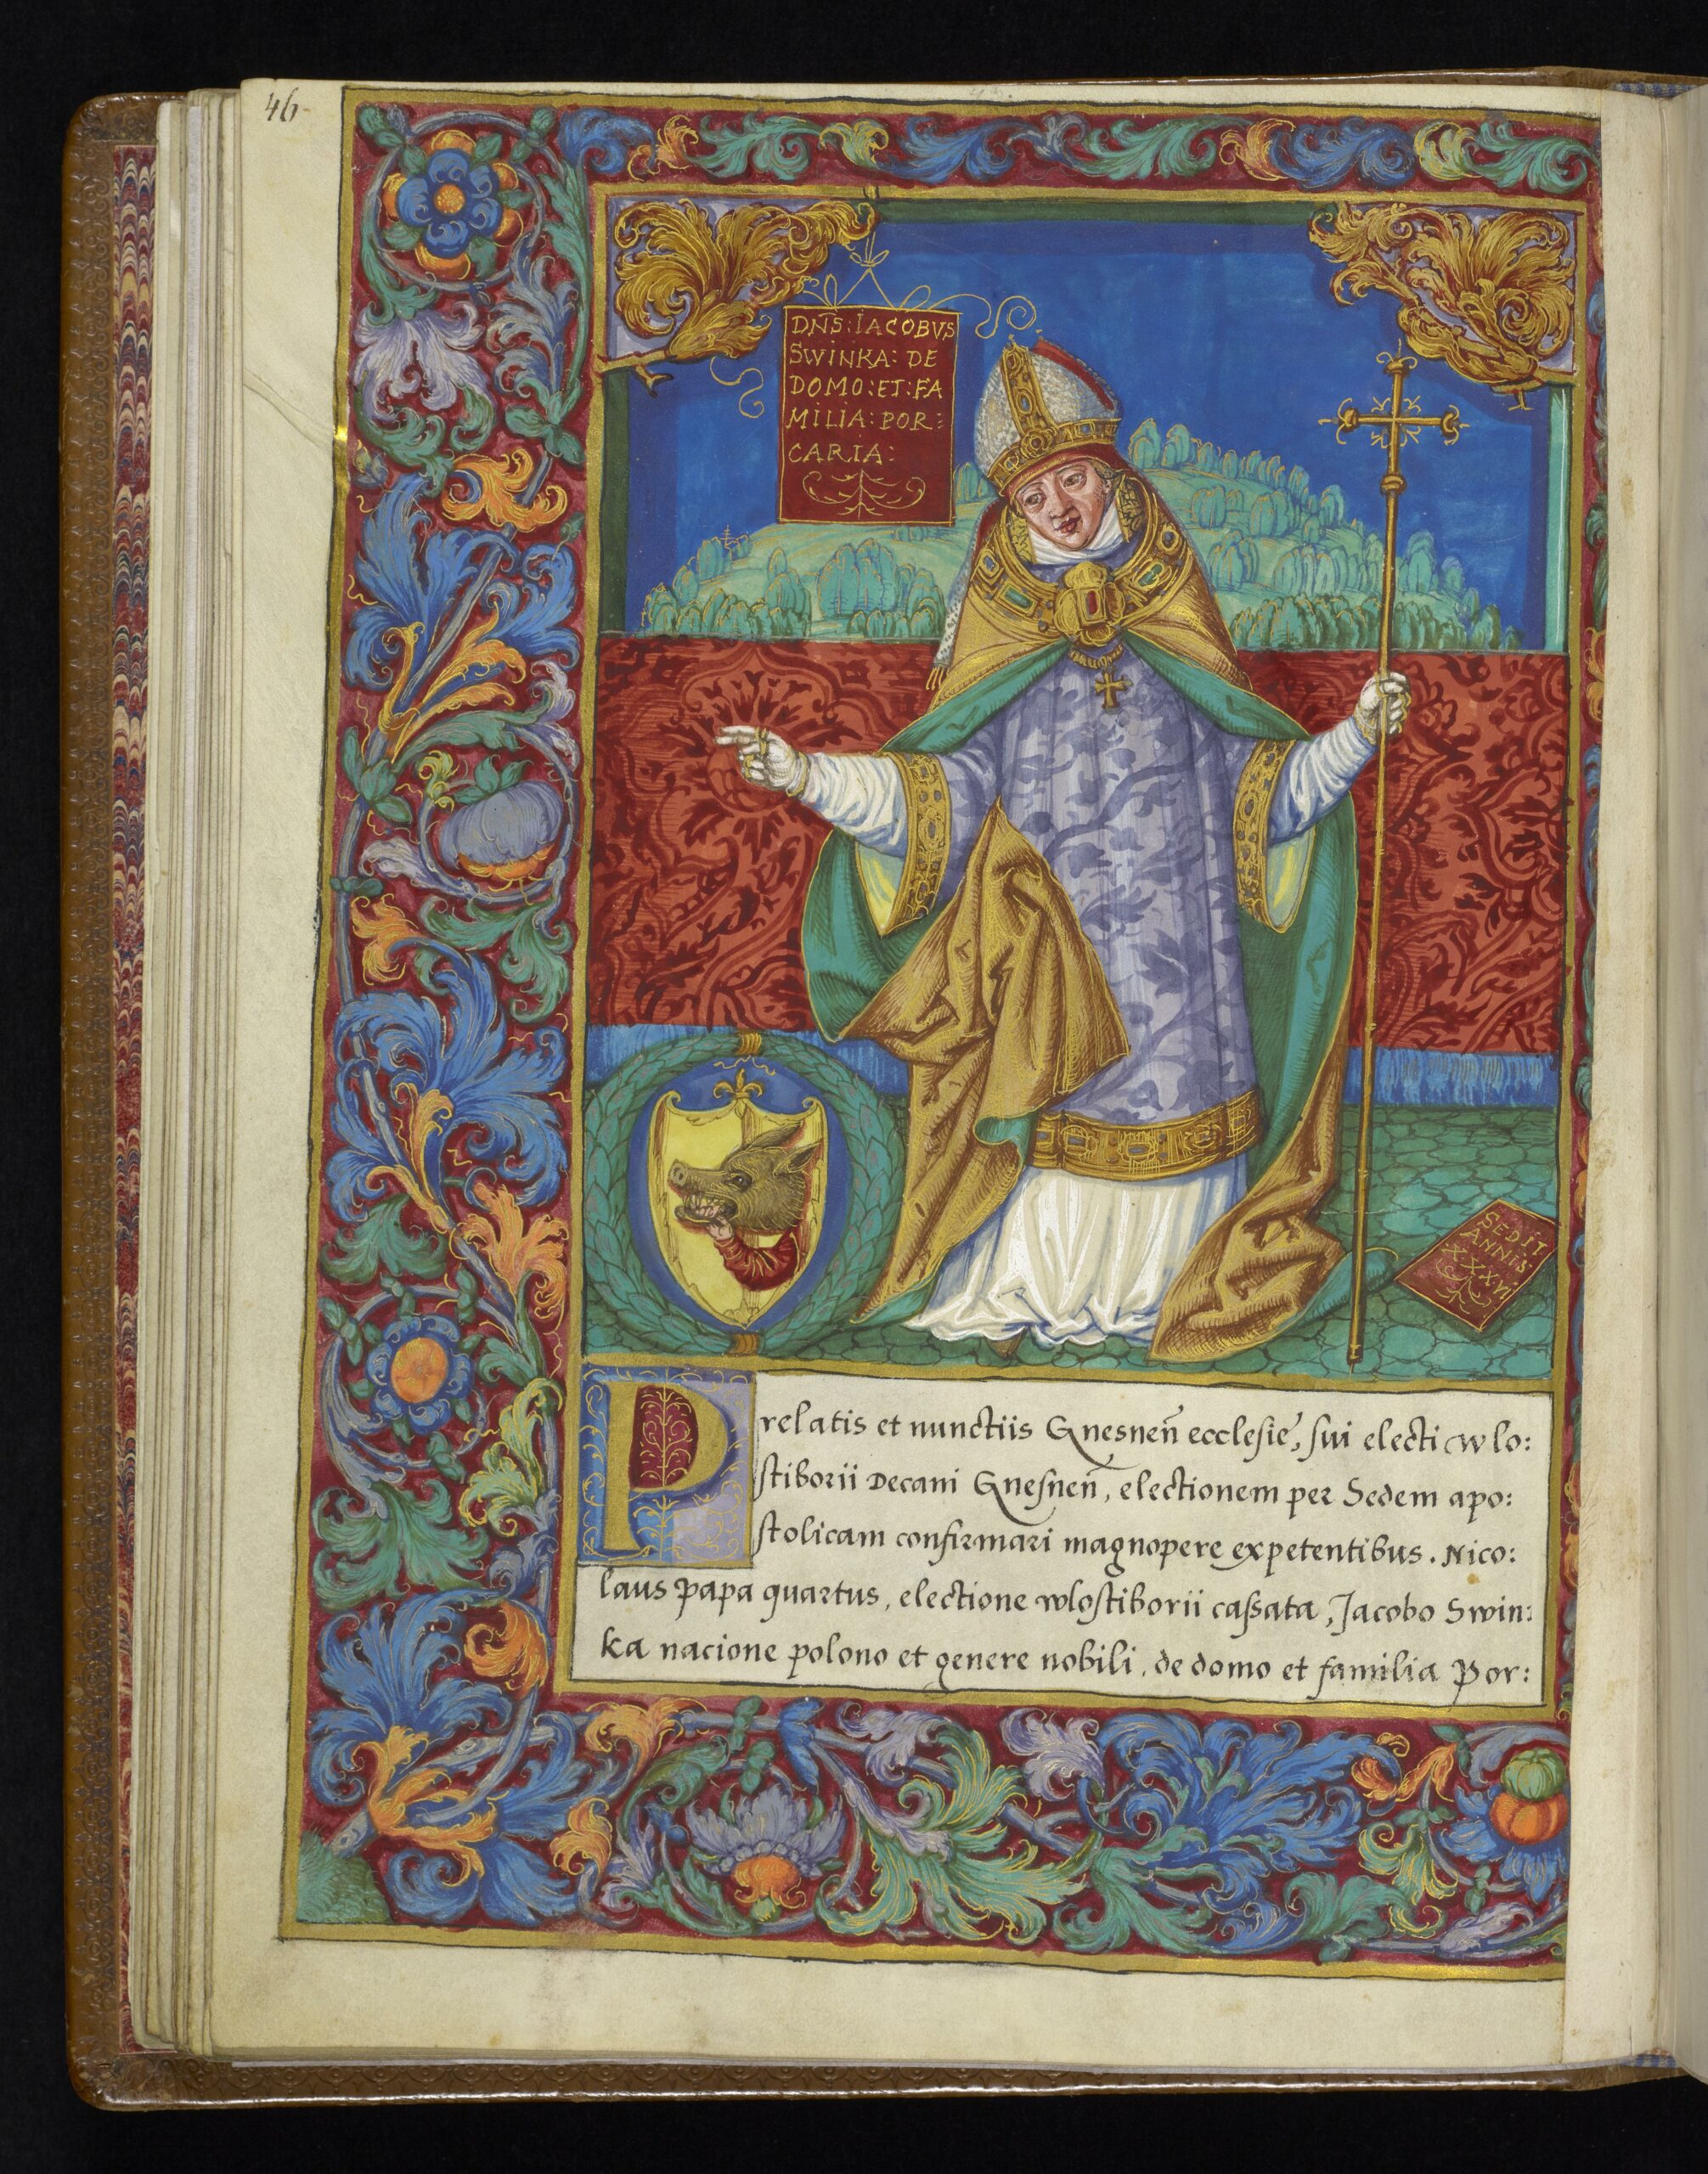 46
DNS: IACOBVS
SWINKA: DE
DOMO: ET: FA
MILIA: POR:
CARIA:
SEDIT
ANNIS
XXXVI
Prelatis et nunctiis Gnesneñ ecclesie, sui electi wlo:
stiborii Decani Gnesneñ, electionem per Sedem apo:
stolicam confirmari magnopere expetentibus. Nico:
laus papa quartus, electione wlostiborii cassata, Jacobo Swin:
ka nacione polono et genere nobili, de domo et familia Por: